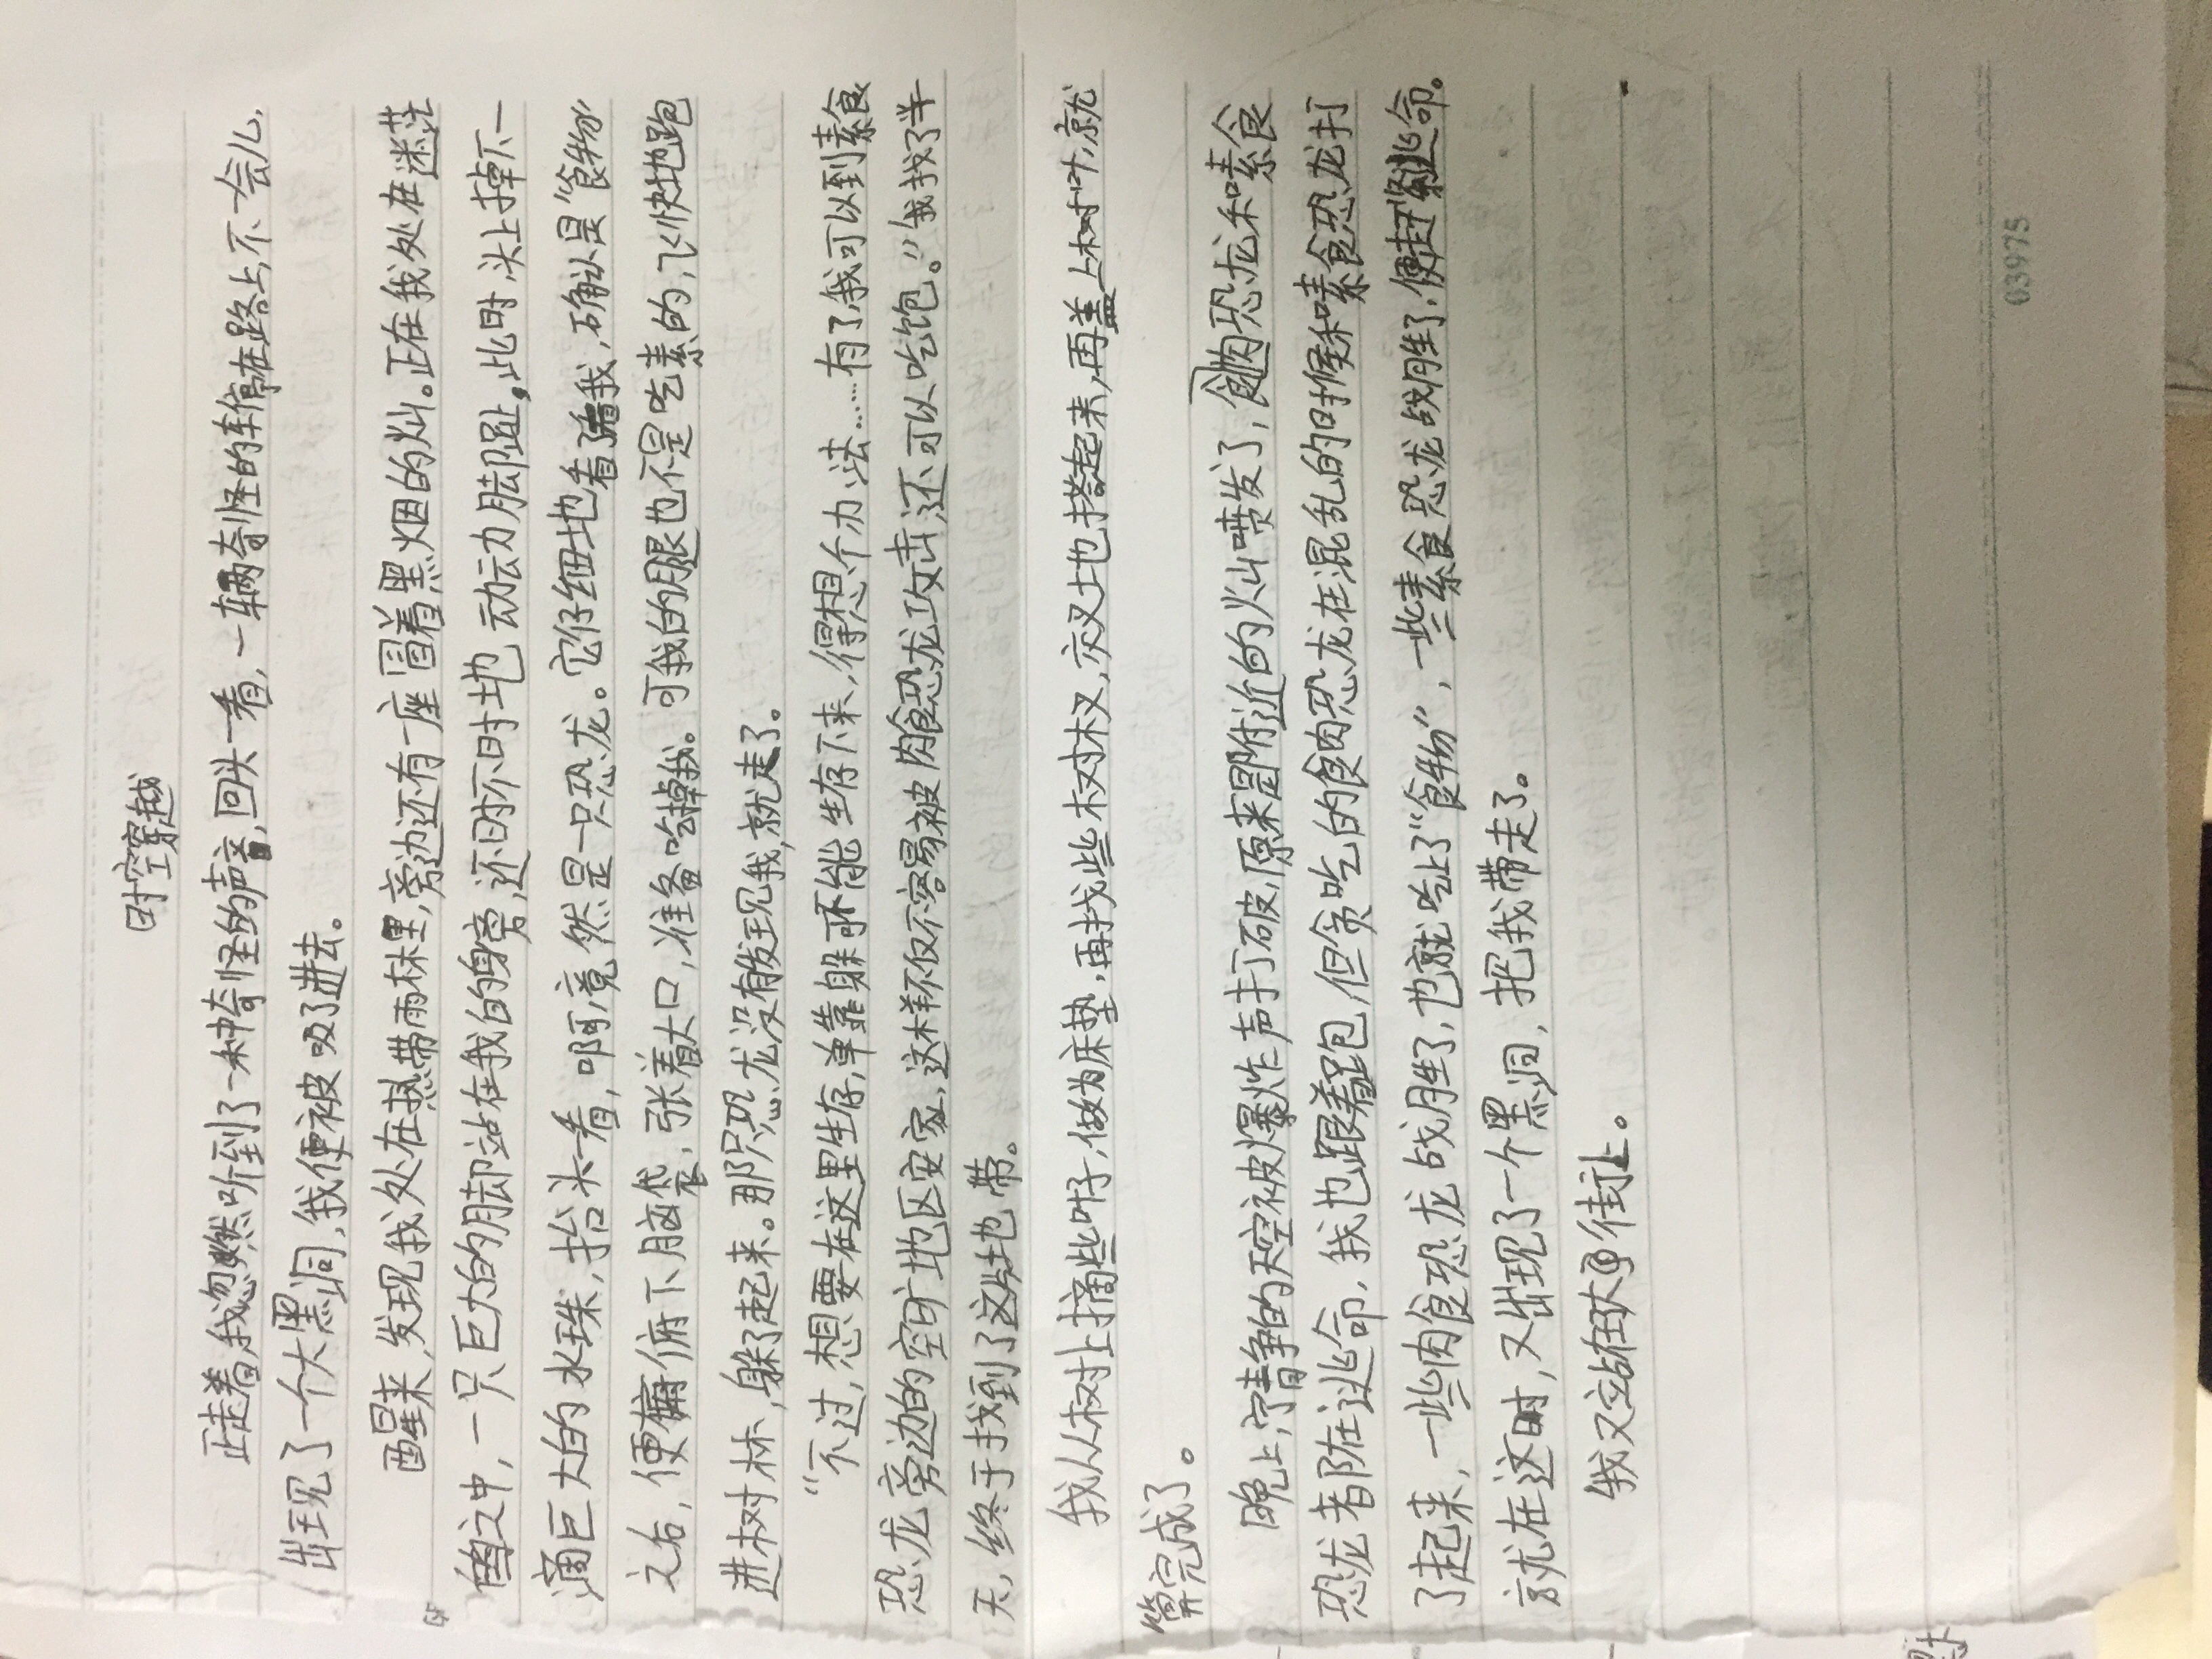 时空穿越
正走着,我忽然听到了一种奇怪的声音,回头一看,一辆奇怪的车停在路上,不一会儿,
出现了一个大黑洞,我便被吸了进去。
醒来,发现我处在热带雨林里,旁边还有一座冒着黑烟的火山。正在我处在迷茫
之中,一只巨大的脚却站在我的身旁,还时不时地动动脚趾。此时,头上掉下一
滴巨大的水珠,抬头一看,啊,竟然是一只恐龙。它仔细地看了看我,确认是“食物”
之后,便俯下脑袋,张着大口,准备吃掉我。可我的腿也不是吃素的,飞快地跑
进树林,躲了起来。那只恐龙没有发现我,就走了。
“不过,想要在这里生存,单靠躲可不能生存下来,得想个办法……有了,我可以到素食
恐龙旁边的空旷地区安家,这样不仅不容易被肉食恐龙攻击,还可以吃饱。”我找了半
天,终于找到了这些地带。
我从树上摘些叶子,做为床垫,再找些树杈,交叉地搭起来,再盖上树叶,就
算完成了。
晚上,宁静的天空被爆炸声打破,原来是附近的火山喷发了,食肉恐龙和素食
恐龙都在逃命,我也跟着跑,但贪吃的食肉恐龙在混乱的时候和素食恐龙打
了起来,一些肉食恐龙战胜了,也就吃上了“食物”,一些素食恐龙战胜了,便赶紧逃命。
就在这时,又出现了一个黑洞,把我带走了。
我又站在大街上。
03975